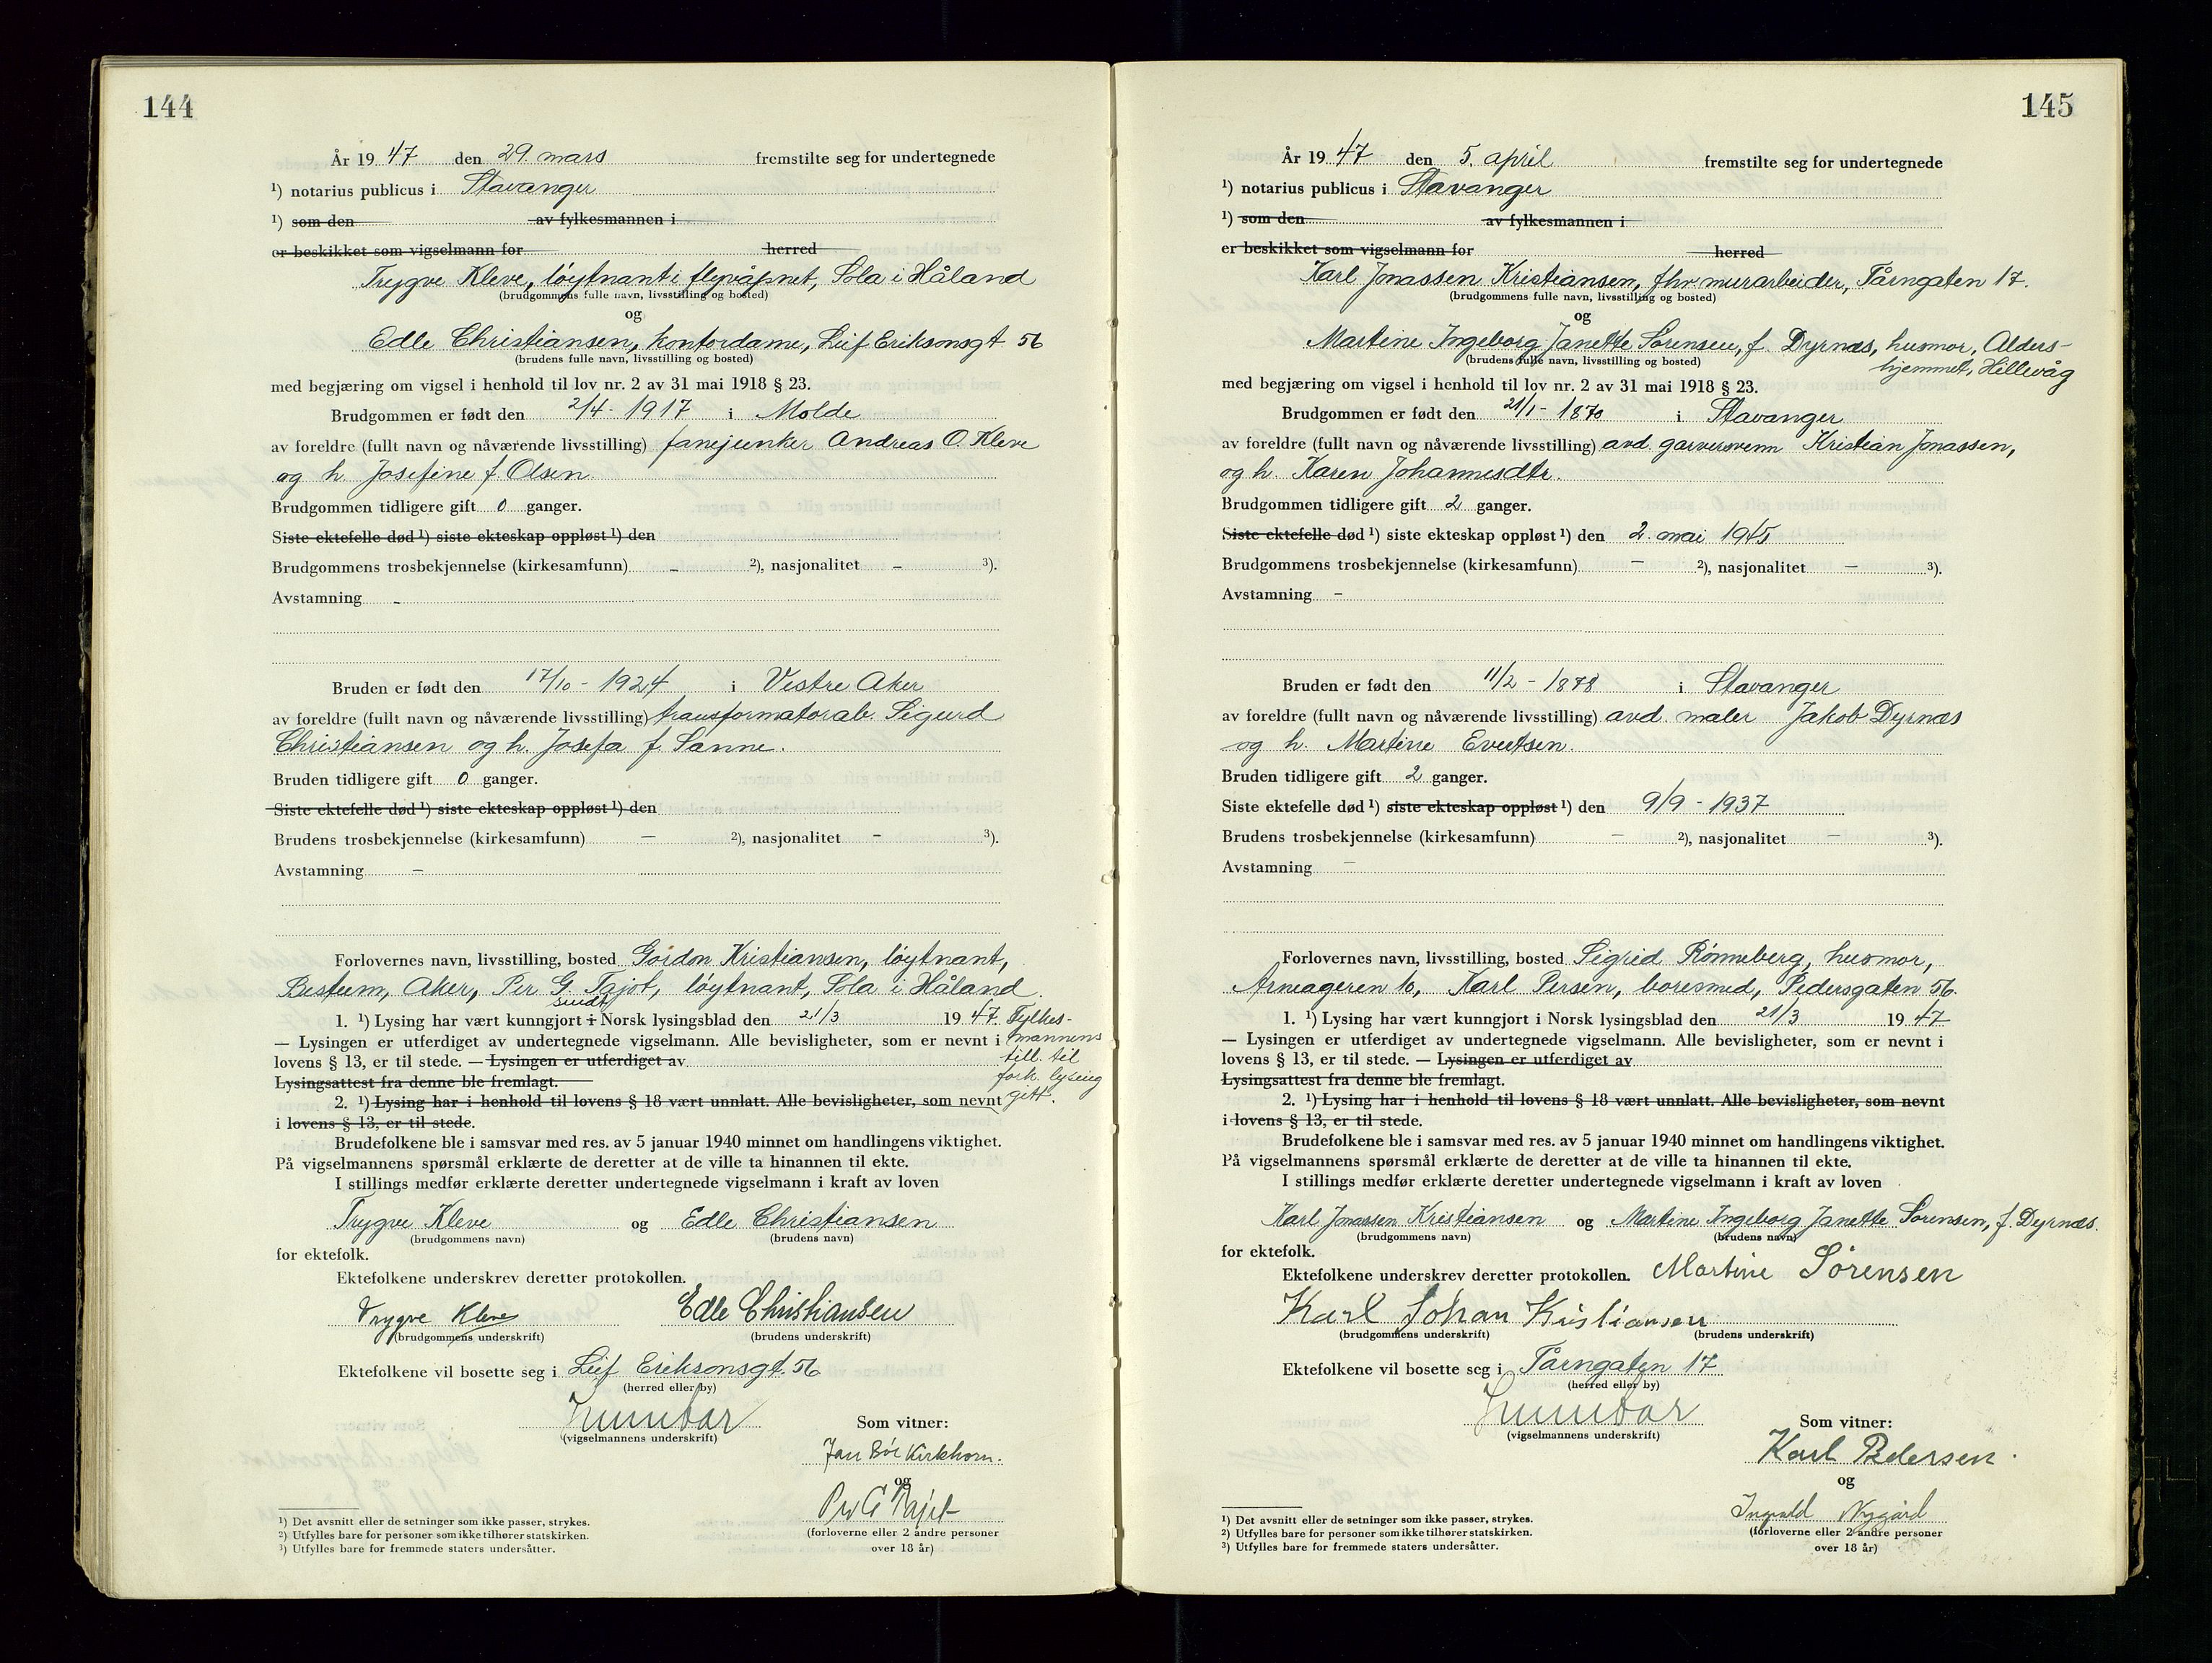 144
År 19 47 den 29. mars fremstilte seg for undertegnede
¹) notarius publicus i Stavanger
¹) som den av fylkesmannen i
er beskikket som vigselmann for herred
Trygve Kleve, løytnant i flyvåpnet, Sola i Håland
(brudgommens fulle navn, livsstilling og bosted)
og
Edle Christiansen, kontordame, Leif Eriksonsgt 56
(brudens fulle navn, livsstilling og bosted)
med begjæring om vigsel i henhold til lov nr. 2 av 31 mai 1918 § 23.
Brudgommen er født den 2/4 - 1917 i Molde
av foreldre (fullt navn og nåværende livsstilling) fanejunker Andreas O. Kleve
og h. Josefine f. Olsen.
Brudgommen tidligere gift 0 ganger.
Siste ektefelle død ¹) siste ekteskap oppløst ¹) den
Brudgommens trosbekjennelse (kirkesamfunn) – ²), nasjonalitet – ³).
Avstamning –
Bruden er født den 17/10 - 1924 i Vestre Aker
av foreldre (fullt navn og nåværende livsstilling) transformatorab. Sigurd
Christiansen og h. Josefa f. Sanne.
Bruden tidligere gift 0 ganger.
Siste ektefelle død ¹) siste ekteskap oppløst ¹) den
Brudens trosbekjennelse (kirkesamfunn) – ²), nasjonalitet – ³).
Avstamning –
Forlovernes navn, livsstilling, bosted Gordon Kristiansen, løytnant,
Bestum, Aker, Per G. Tajet, løytnant, Sola i Håland.
sendt
1. ¹) Lysing har vært kunngjort i Norsk lysingsblad den 21/3 19 47. Fylkes-
— Lysingen er utferdiget av undertegnede vigselmann. Alle bevisligheter, som er nevnt i mannens
lovens § 13, er til stede. — Lysingen er utferdiget av till. til
Lysingsattest fra denne ble fremlagt. fork. lysing
2. ¹) Lysing har i henhold til lovens § 18 vært unnlatt. Alle bevisligheter, som nevnt gitt.
i lovens § 13, er til stede.
Brudefolkene ble i samsvar med res. av 5 januar 1940 minnet om handlingens viktighet.
På vigselmannens spørsmål erklærte de deretter at de ville ta hinannen til ekte.
I stillings medfør erklærte deretter undertegnede vigselmann i kraft av loven
Trygve Kleve og Edle Christiansen
(brudgommens navn) (brudens navn)
for ektefolk.
Ektefolkene underskrev deretter protokollen.
Trygve Kleve Edle Christiansen
(brudgommens underskrift) (brudens underskrift)
Ektefolkene vil bosette seg i Leif Eriksonsgt. 56
(herred eller by)
(vigselmannens underskrift)
Som vitner:
Jan Kirkhorn.
og
Per G Tajet
(forloverne eller 2 andre personer
over 18 år)
¹) Det avsnitt eller de setninger som ikke passer, strykes.
²) Utfylles bare for personer som ikke tilhører statskirken.
³) Utfylles bare for fremmede staters undersåtter.
145
År 19 47 den 5. april fremstilte seg for undertegnede
¹) notarius publicus i Stavanger
¹) som den av fylkesmannen i
er beskikket som vigselmann for herred
Karl Jonassen Kristiansen, fhv. murarbeider, Tårngaten 17.
(brudgommens fulle navn, livsstilling og bosted)
og
Martine Ingeborg Janette Sørensen, f. Dyrnæs, husmor, Alders-
hjemmet, Hillevåg
(brudens fulle navn, livsstilling og bosted)
med begjæring om vigsel i henhold til lov nr. 2 av 31 mai 1918 § 23.
Brudgommen er født den 21/1 - 1870 i Stavanger
av foreldre (fullt navn og nåværende livsstilling) avd. garversvenn Kristian Jonassen,
og h. Karen Johannesdtr.
Brudgommen tidligere gift 2 ganger.
Siste ektefelle død ¹) siste ekteskap oppløst ¹) den 2. mai 1945
Brudgommens trosbekjennelse (kirkesamfunn) – ²), nasjonalitet – ³).
Avstamning –
Bruden er født den 11/2 - 1878 i Stavanger
av foreldre (fullt navn og nåværende livsstilling) avd. maler Jakob Dyrnæs
og h. Martine Evertsen.
Bruden tidligere gift 2 ganger.
Siste ektefelle død ¹) siste ekteskap oppløst ¹) den 9/9 - 1937
Brudens trosbekjennelse (kirkesamfunn) – ²), nasjonalitet – ³).
Avstamning –
Forlovernes navn, livsstilling, bosted Sigrid Rønneberg, husmor,
Armageren 10, Karl Persen, boresmed, Pedersgaten 56.
1. ¹) Lysing har vært kunngjort i Norsk lysingsblad den 21/3 19 47
— Lysingen er utferdiget av undertegnede vigselmann. Alle bevisligheter, som er nevnt i
lovens § 13, er til stede. — Lysingen er utferdiget av
Lysingsattest fra denne ble fremlagt.
2. ¹) Lysing har i henhold til lovens § 18 vært unnlatt. Alle bevisligheter, som nevnt
i lovens § 13, er til stede.
Brudefolkene ble i samsvar med res. av 5 januar 1940 minnet om handlingens viktighet.
På vigselmannens spørsmål erklærte de deretter at de ville ta hinannen til ekte.
I stillings medfør erklærte deretter undertegnede vigselmann i kraft av loven
Karl Jonassen Kristiansen og Martine Ingeborg Janette Sørensen, f. Dyrnæs.
(brudgommens navn) (brudens navn)
for ektefolk.
Ektefolkene underskrev deretter protokollen. Martine Sørensen
Karl Johan Kristiansen
(brudgommens underskrift) (brudens underskrift)
Ektefolkene vil bosette seg i Tårngaten 17
(herred eller by)
(vigselmannens underskrift)
Som vitner:
Karl Pedersen.
og
Ingvald Nygård
(forloverne eller 2 andre personer
over 18 år)
¹) Det avsnitt eller de setninger som ikke passer, strykes.
²) Utfylles bare for personer som ikke tilhører statskirken.
³) Utfylles bare for fremmede staters undersåtter.